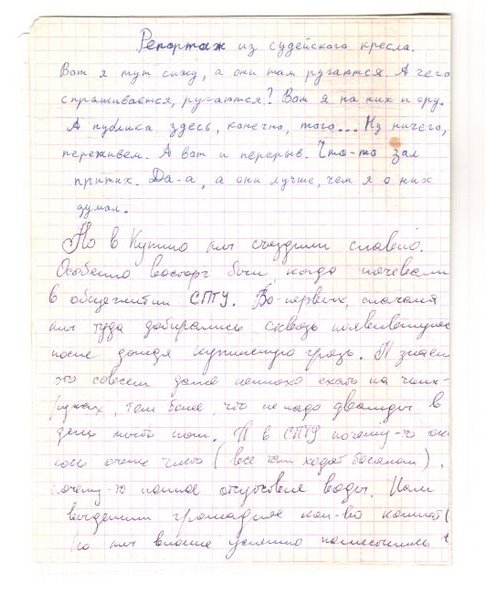 Репортаж из судейского кресла.
Вот я тут сижу, а они там ругаются. А чего
спрашивается, ругаются? Вот я на них и ору.
А публика здесь, конечно, того... Ну ничего,
переживём. А вот и перерыв. Что-то зал
притих. Да-а, а они лучше, чем я о них
думал.
Но в Купино мы съездили славно.
Особенно восторг был когда ночевали
в общежитии СПТУ. Во-первых, сначала
мы туда добирались сквозь появившуюся
после дождя купинскую грязь. Я знаем
это совсем даже неплохо ехать на
, тем более, что не надо дважды в
день мыть пол. А в СПТУ почему-то
очень чисто (все там ходят босиком).
почему-то полное отсутствие воды. Нам
выделили громадное кол-во комнат (
но мы вполне успешно поместились в